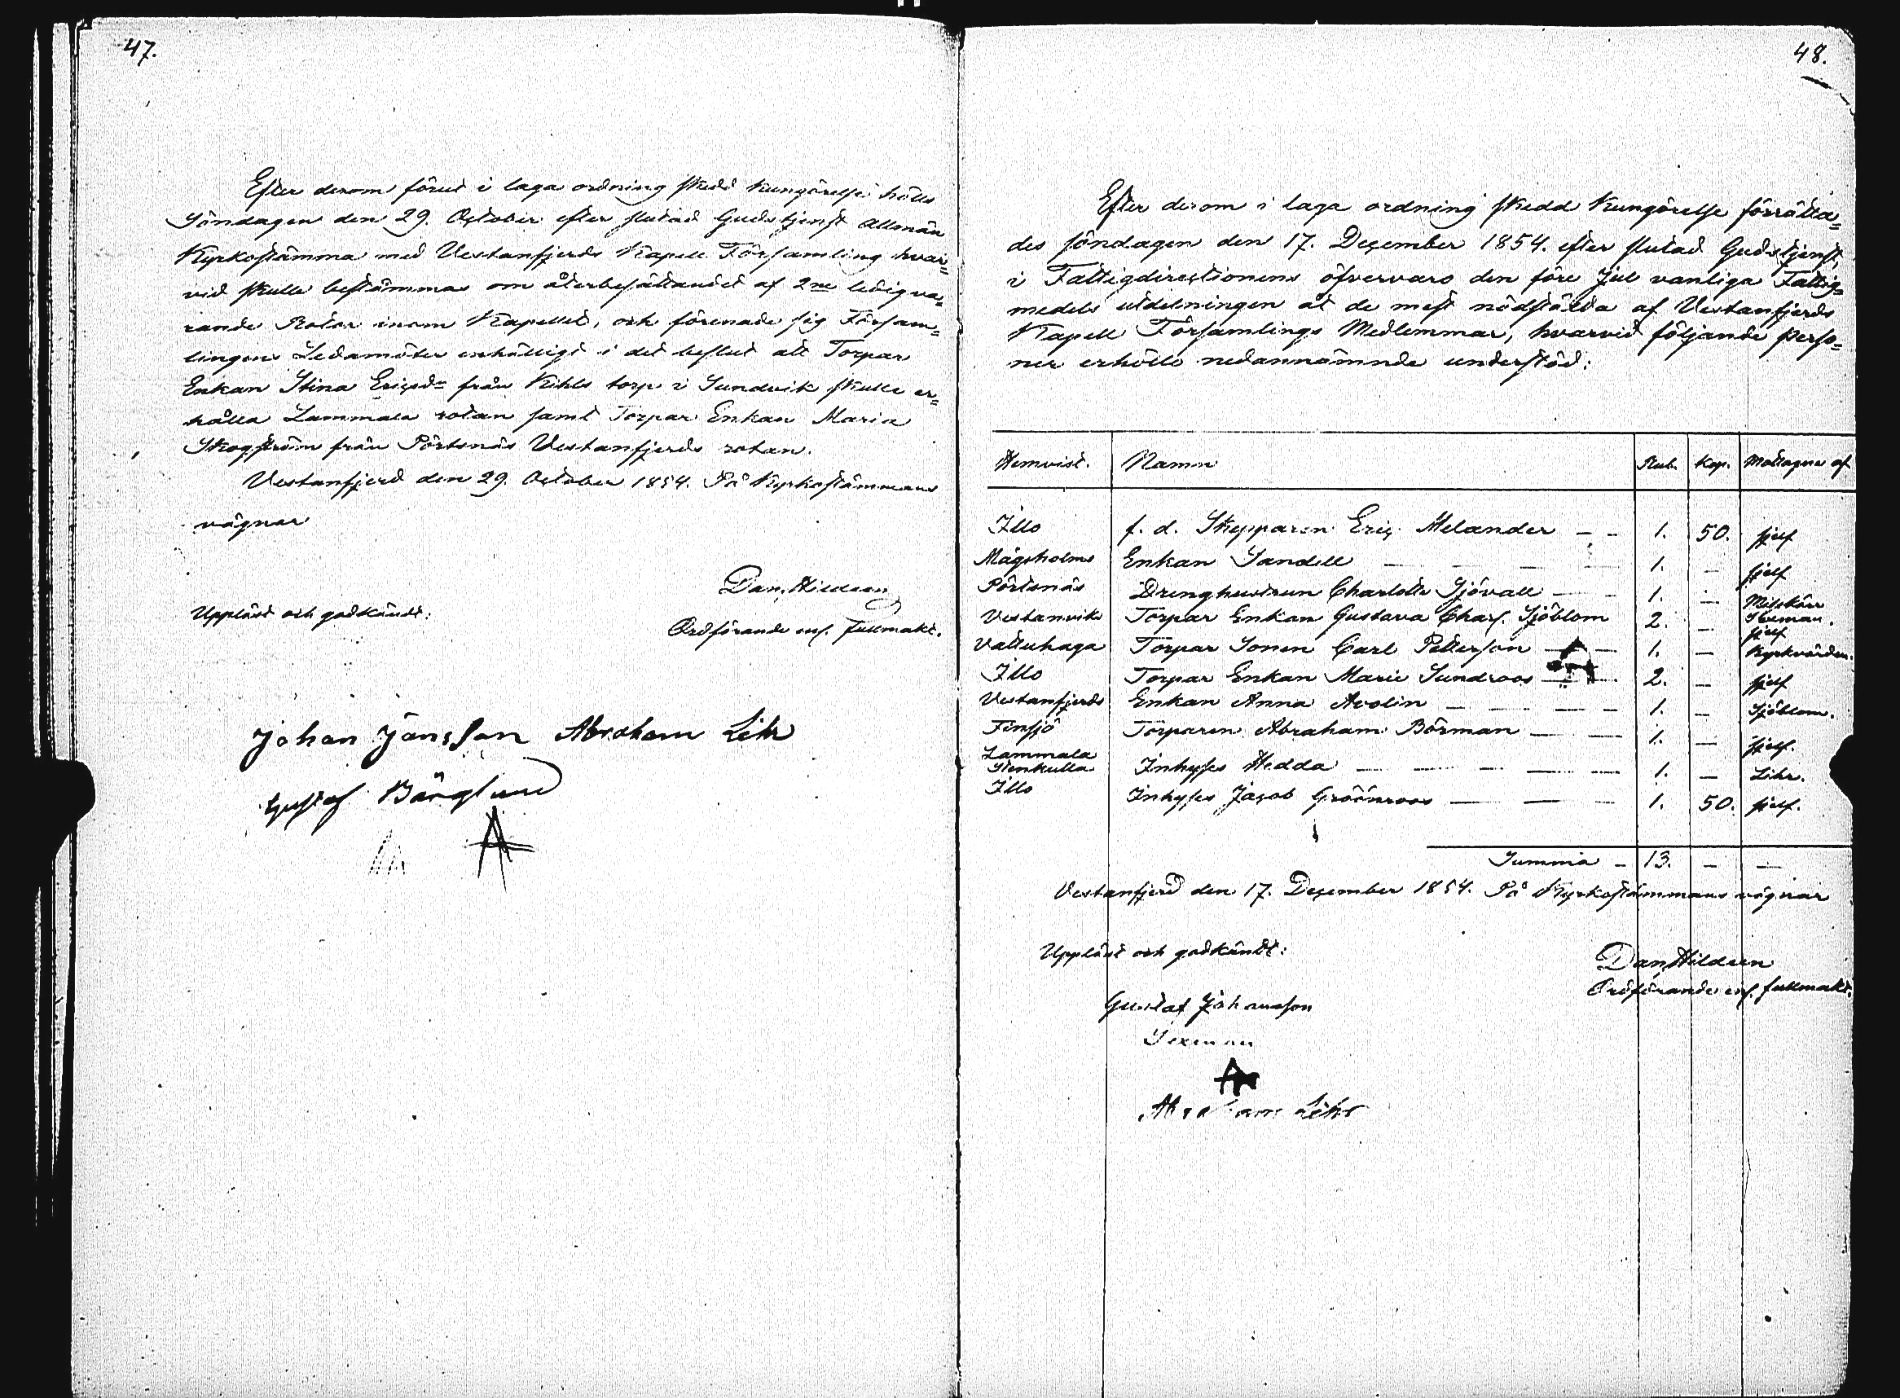 47.
Efter derom förut i laga ordning skedd kungörelse hölls
Söndagen den 29. October efter slutad Gudstjenst allmän
Kyrkostämma med Vestanfjerds Kapell Församling hvar=
vid skulle bestämmas om återbesättandet af 2ne ledigva=
rande Rotar inom Kapellet, och förenade sig Församl=
lingens Ledamöter enhälligt i det beslut att Torpar
Enkan Stina Ericsdr från Kihls torp i Sundvik skulle er=
hålla Lammala rotan samt Torpar Enkan Maria
Skogström från Pörtsnäs Vestanfjerds rotan.
Vestanfjerd den 29. October 1854. På Kyrkostämmans
vägnar
Dan. Hildeen
Uppläst och godkändt:
Ordförande enl. fullmakt.
Johan Jönsson Abraham Lihr
Gustaf Bärglund
48.
Efter derom i laga ordning skedd Kungörelse förrätta=
des söndagen den 17. December 1854. efter slutad Gudstjenst,
i Fattigdirectionens öfvervaro den före Jul vanliga Fattig=
medels utdelningen åt de mest nödstälda af Vestanfjerds
Kapell Församlings Medlemmar, hvarvid följande perso=
ner erhöllo nedannämnde understöd:
Hemvist. Namn Rub. Kop. Mottagne af
Illo f. d. Skepparen Eric Melander — — 1. 50. sjelf
Mågsholms Enkan Sandell — 1. — sjelf
Pörtsnäs Drenghustrun Charlotta Sjövall — 1. — Milskär
Vestanviks Torpar Enkan Gustava Charl. Sjöblom 2. — sjelf
Vattuhaga Torpar Sonen Carl Petterson — 1. — Kyrkvärden.
Illo Torpar Enkan Maria Sundroos — 2. — sjelf
Vestanfjerds Enkan Anna Avolin — 1. — Sjöblom.
Finsjö Torparen Abraham Börman — 1. — sjelf.
Lammala
Stenkulla Inhyses Hedda — 1. — Lihr.
Illo Inhyses Jacob Gröönroos — 1. 50. sjelf.
Summa — 13. — —
Vestanfjerd den 17. December 1854. På Kyrkostämmans vägnar
Uppläst och godkändt:
Dan. Hildeen
Ordförande enl. fullmakt.
Gustaf Johansson
Sexman
Abraham Lihr